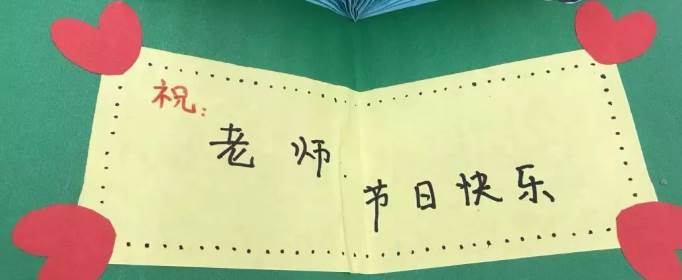 祝:
老师
节日快乐